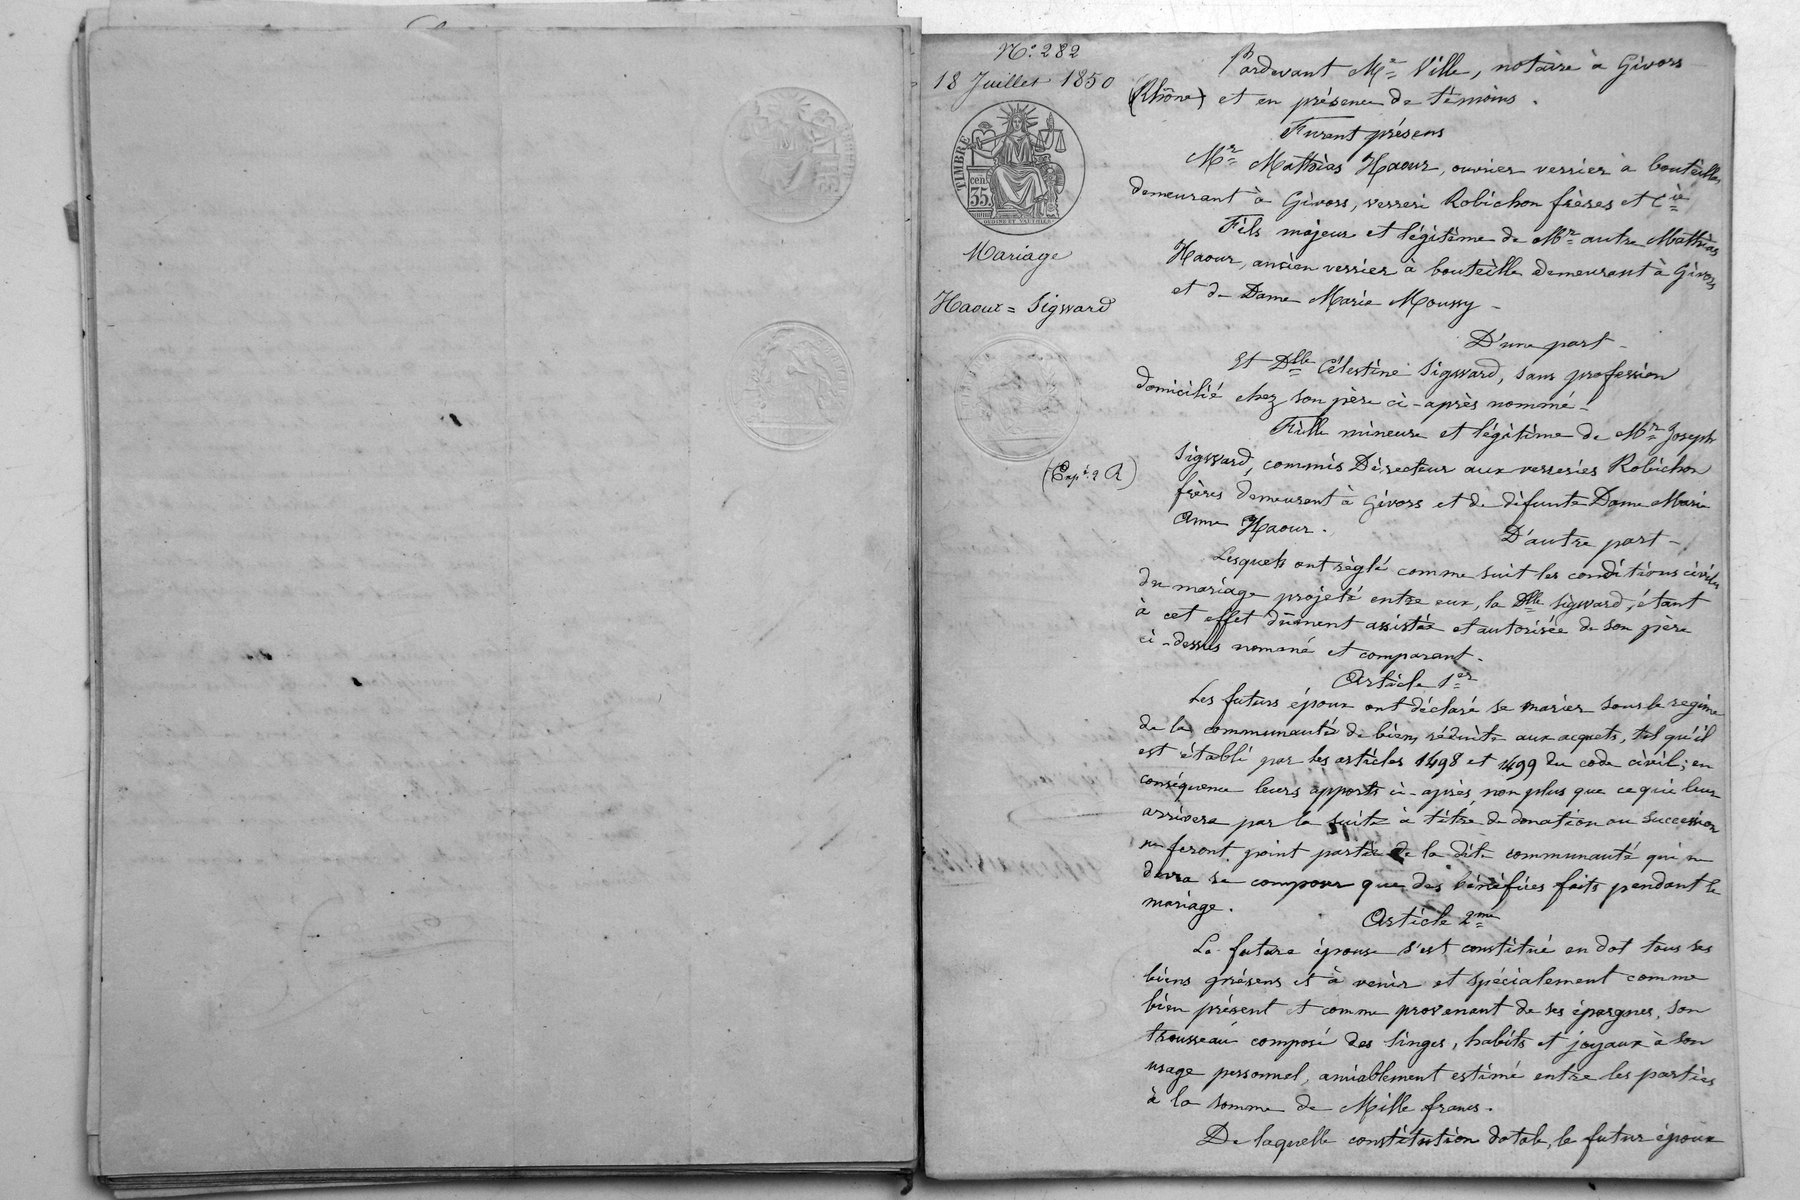 N.° 282
18 Juillet 1850
TIMBRE
cen.
35.
OUDINE ET VAUTHIER F.
Mariage
Haour = Sigward
(Exp.é 2 R)
Pardevant Me Ville, notaire à Givors
(Rhône) et en présence de témoins.
Furent présens
Mr Mathias Haour, ouvrier verrier à bouteilles
demeurant à Givors, verreri Robichon frères et Cie
Fils majeur et légitime de Mr autre Mathias
Haour, ancien verrier à bouteille demeurant à Givors
et de Dame Marie Moussy -
D'une part -
Et Dlle Célestine Sigward, sans profession
domicilié chez son père ci-après nommé -
Fille mineure et légitime de Mr Joseph
Sigward, commis Directeur aux verreries Robichon
frères demeurant à Givors et de défunte Dame Marie
Anne Haour.
D'autre part -
Lesquels ont règlé comme suit les conditions civiles
du mariage projeté entre eux, la Dlle Sigward, étant
à cet effet dûment assistée et autorisée de son père
ci-dessus nommé et comparant.
Article 1er
Les futurs époux ont déclaré se marier sous le régime
de la communauté de biens réduite aux acquets, tel qu'il
est établi par les articles 1498 et 1499 du code civil; en
conséquence leurs apports ci-après, non plus que ce qui leur
arrivera par la suite à titre de donation ou succession
ne feront point partie de la dite communauté qui ne
devra se composer que des bénéfices faits pendant le
mariage.
Article 2me
La future épouse s'est constitué en dot tous ses
biens présens et à venir et spécialement comme
bien présent et comme provenant de ses épargnes, son
trousseau composé des linges, habits et joyaux à son
usage personnel, amiablement estimé entre les parties
à la somme de Mille francs.
De laquelle constitution dotale, le futur époux